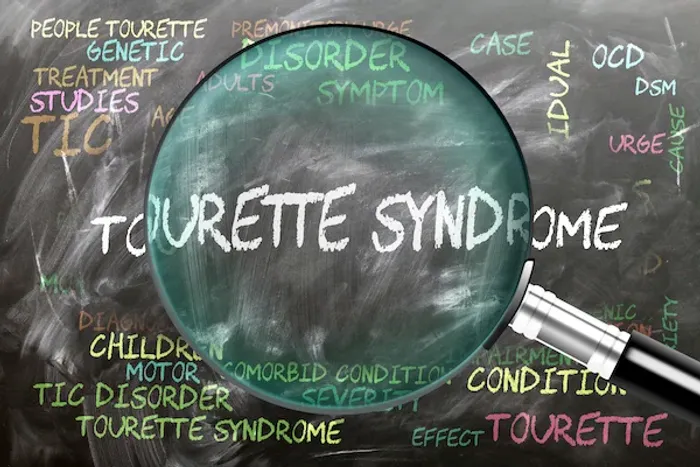 PEOPLE TOURETTE
PREMONITORY URGE
GENETIC
DISORDER
CASE
OCD
TREATMENT
ADULTS
SYMPTOM
IDUAL
DSM
STUDIES
TIC
URGE
CAUSE
TOURETTE SYNDROME
CHILDREN
MOTOR
COMORBID CONDITION
CONDITION
TIC DISORDER
SEVERITY
TOURETTE SYNDROME
EFFECT
TOURETTE